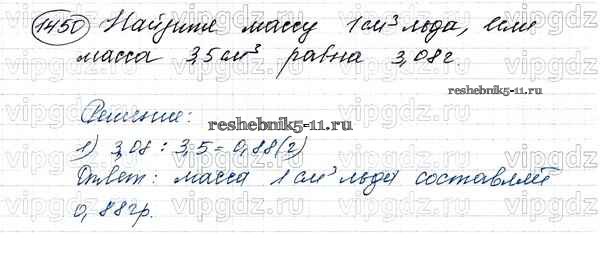 1450 Найдите массу 1 см³ льда, если
масса 3,5 см³ равна 3,08 г.
reshebnik5-11.ru
Решение:
reshebnik5-11.ru
1) 3,08 : 3,5 = 0,88 (г)
Ответ: масса 1 см³ льда составляет
0,88 гр.
vipgdz.ru